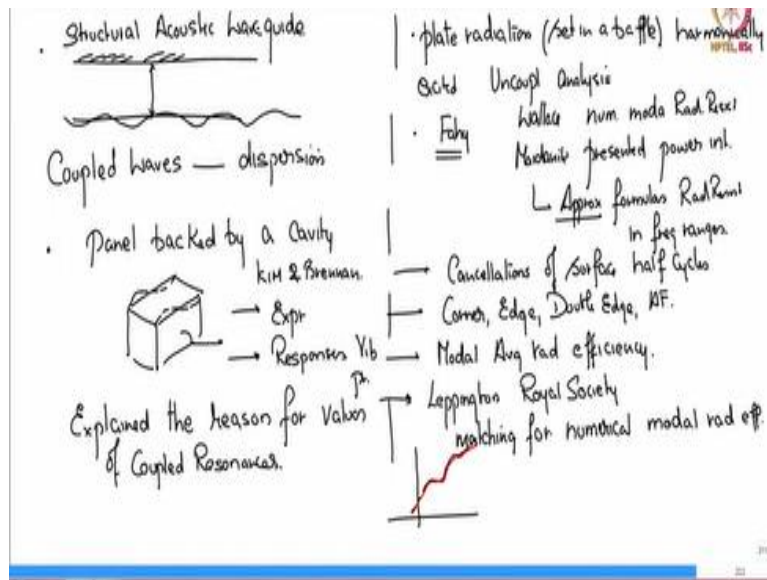 · Structural Acoustic Waveguide
Coupled waves — dispersion
· Panel backed by a Cavity
KIM & Brennan.
→ Expr
→ Responses Vib
Pr.
Explained the reason for values
of Coupled Resonances.
· plate radiation (set in a baffle) harmonically
NPTEL, IISc
Excitd Uncoupl analysis
Wallace num moda Rad. Resi
· Fahy
presented power int.
↳ Approx formulas Rad Resist
in freq ranges.
→ Cancellations of surface half cycles
→ Corner, Edge, Double Edge, AF.
→ Modal Avg rad efficiency.
→ Leppington Royal Society
matching for numerical modal rad eff.